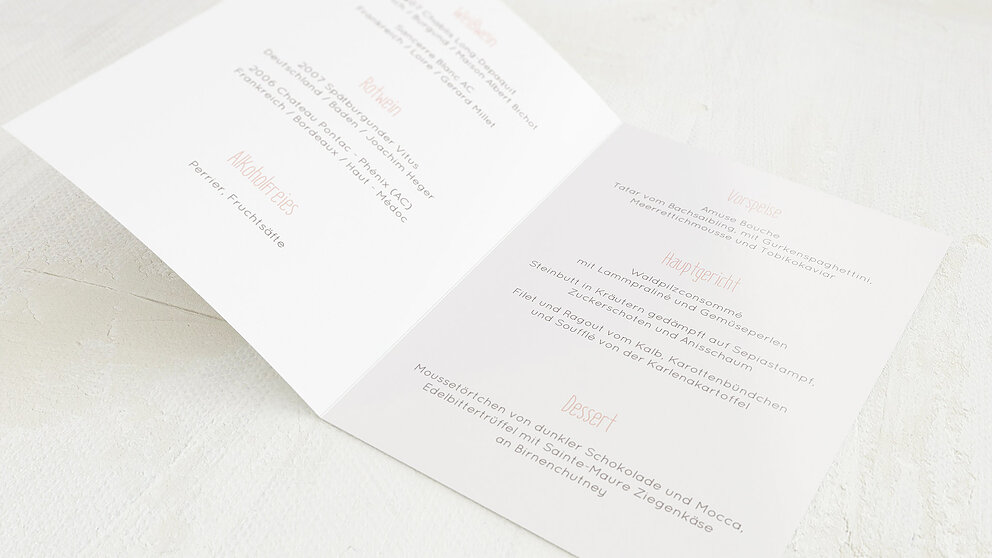 Weißwein
Chablis Long-Depaquit
Burgund / Maison Albert Bichot
Sancerre Blanc AC
Frankreich / Loire / Gerard Millet
Rotwein
2007 Spätburgunder Vitus
Deutschland / Baden / Joachim Heger
2006 Chateau Pontac - Phénix (AC)
Frankreich / Bordeaux / Haut - Médoc
Alkoholfreies
Perrier, Fruchtsäfte
Vorspeise
Amuse Bouche
Tatar vom Bachsaibling, mit Gurkenspaghettini,
Meerrettichmousse und Tobikokaviar
Hauptgericht
Waldpilzconsommé
mit Lammpraliné und Gemüseperlen
Steinbutt in Kräutern gedämpft auf Sepiastampf,
Zuckerschoten und Anisschaum
Filet und Ragout vom Kalb, Karottenbündchen
und Soufflé von der Karlenakartoffel
Dessert
Moussetörtchen von dunkler Schokolade und Mocca,
Edelbittertrüffel mit Sainte-Maure Ziegenkäse
an Birnenchutney